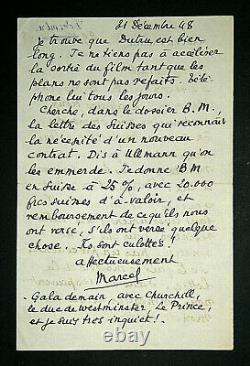 21 Décembre 48
Je trouve que Dutru est bien
long. Je ne tiens pas à accélérer
la sortie du film tant que les
plans ne sont pas refaits. Télé-
phone lui tous les jours.
Cherche, dans le dossier B.M.,
la lettre des Suisses qui reconnait
la nécessité d'un nouveau
contrat. Dis à Ullmann qu'on
les emmerde. Je donne B M
en Suisse à 25%, avec 20.000
fics suisses d'à-valoir, et
remboursement de ce qu'ils nous
ont versé, s'ils ont versé quelque
chose. Ils sont culottés !
affectueusement
Marcel
- Gala demain, avec Churchill,
le duc de Westminster, Le Prince,
et je suis très inquiet !